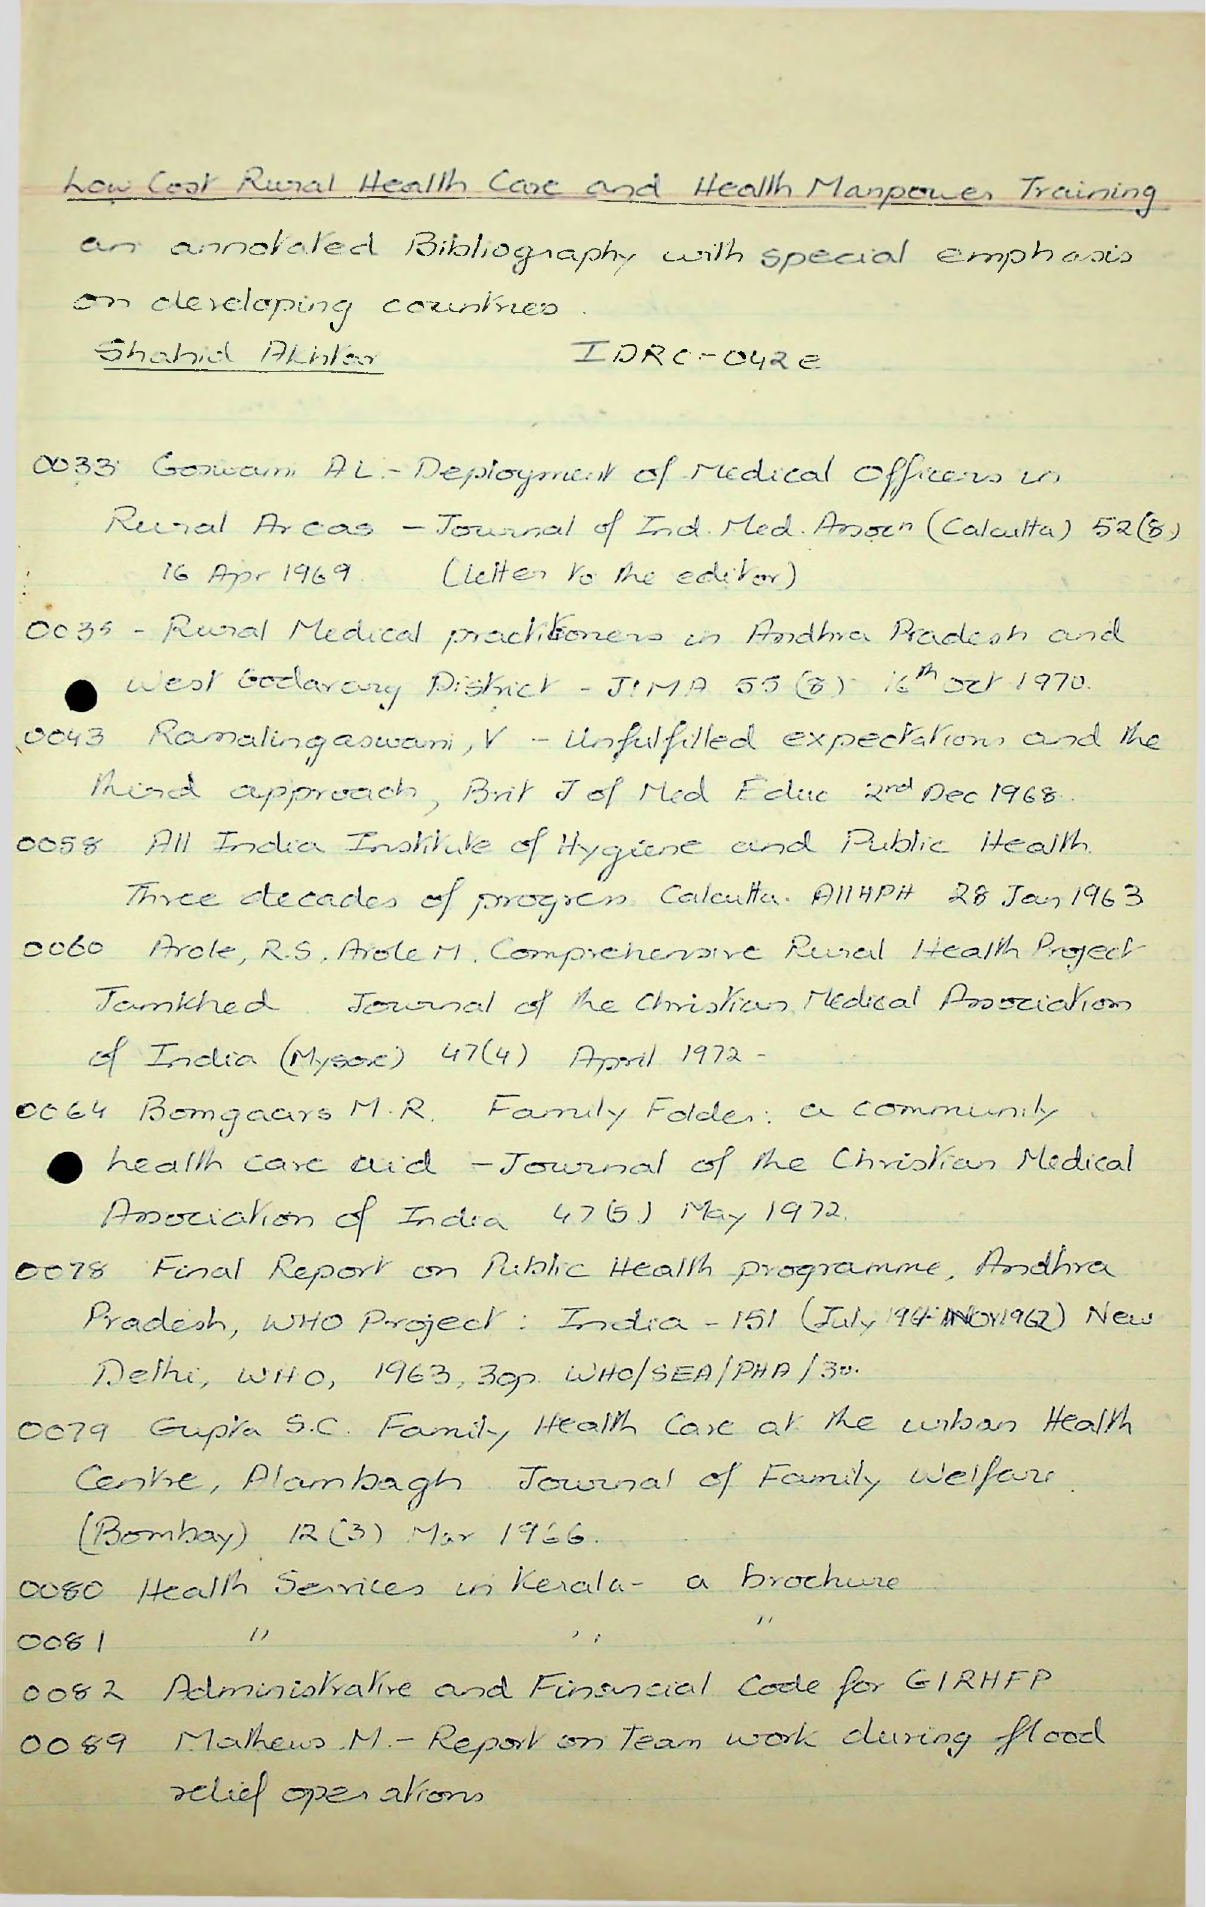 Low Cost Rural Health Care and Health Manpower Training
an annotated Bibliography with special emphasis
on developing countries.
Shahid Akhtar IDRC-042e
0033 Goswami AL.- Deployment of Medical Officers in
Rural Areas - Journal of Ind. Med. Assocn (Calcutta) 52(8)
16 Apr 1969 (letter to the editor)
0035 - Rural Medical practitioners in Andhra Pradesh and
West Godavary District - JIMA 55(8) 16th Oct 1970.
0043 Ramalingaswami, V - Unfulfilled expectations and the
third approach, Brit J of Med Educ 2nd Dec 1968.
0058 All India Institute of Hygiene and Public Health.
Three decades of progress. Calcutta. AIIHPH 28 Jan 1963
0060 Arole, R.S, Arole M. Comprehensive Rural Health Project
Jamkhed Journal of the Christian Medical Association
of India (Mysore) 47(4) April 1972 -
0064 Bomgaars M.R. Family Folder: a community
health care aid - Journal of the Christian Medical
Association of India 47(5) May 1972.
0078 Final Report on Public Health programme, Andhra
Pradesh, WHO Project: India - 151 (July Nov 1962) New
Delhi, WHO, 1963, 30p. WHO/SEA/PHA/30.
0079 Gupta S.C. Family Health Care at the urban Health
Centre, Alambagh Journal of Family Welfare
(Bombay) 12(3) Mar 1966.
0080 Health Services in Kerala - a brochure
0081 " " "
0082 Administrative and Financial Code for GIRHFP
0089 Mathews M. - Report on Team work during flood
relief operations